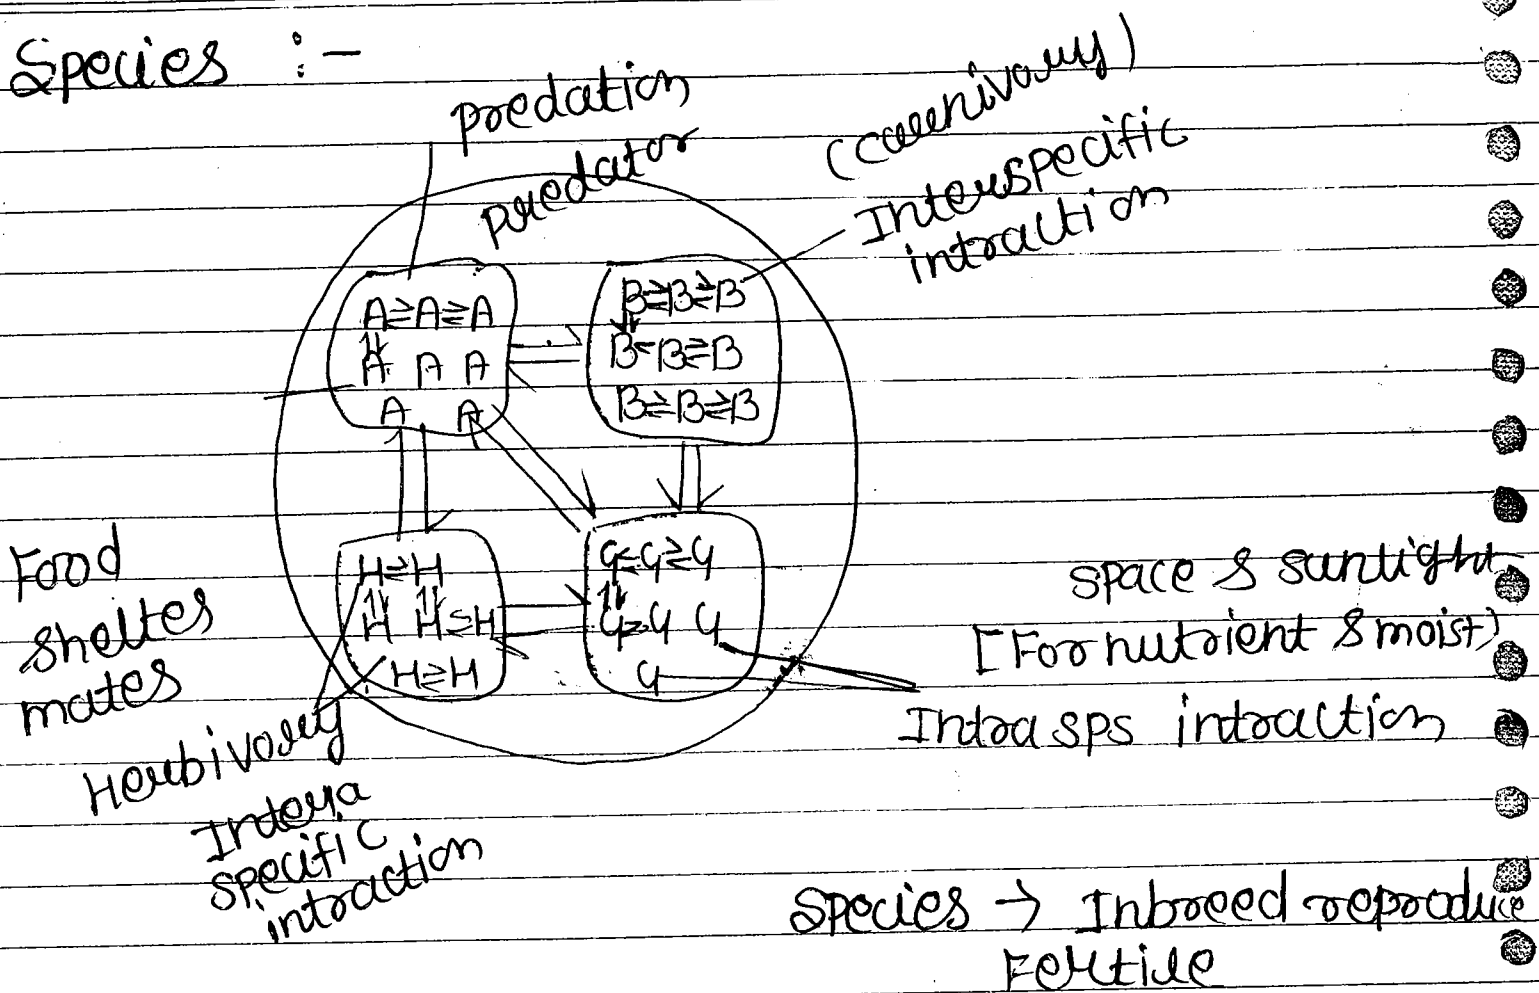 Species :-
predation
predator
(carnivory)
Interspecific
intraction
A⇌A⇌A
A A A
A A
B⇌B⇌B
B⇌B⇌B
B⇌B⇌B
Food
shelter
mates
H⇌H
H H⇌H
H⇌H
G⇌G⇌G
G⇌G G
G
space & sunlight
[For nutrient & moist)
Intra sps intraction
Herbivory
Intera
specific
intraction
Species → Inbreed reproduce
Fertile